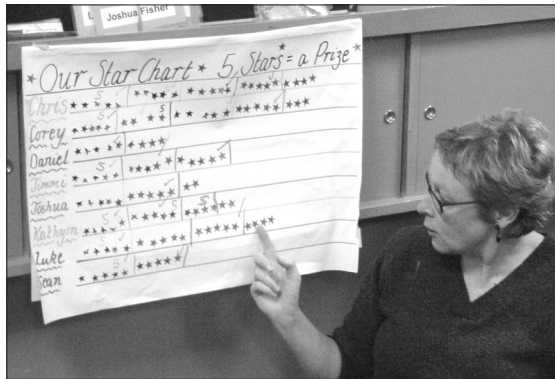 L
Joshua Fisher
Our Star Chart 5 Stars = a Prize
Chris 5
Corey 5 5
Daniel
Jimmi 5
Joshua
Kathryn 5 5
Luke 5
Sean 5